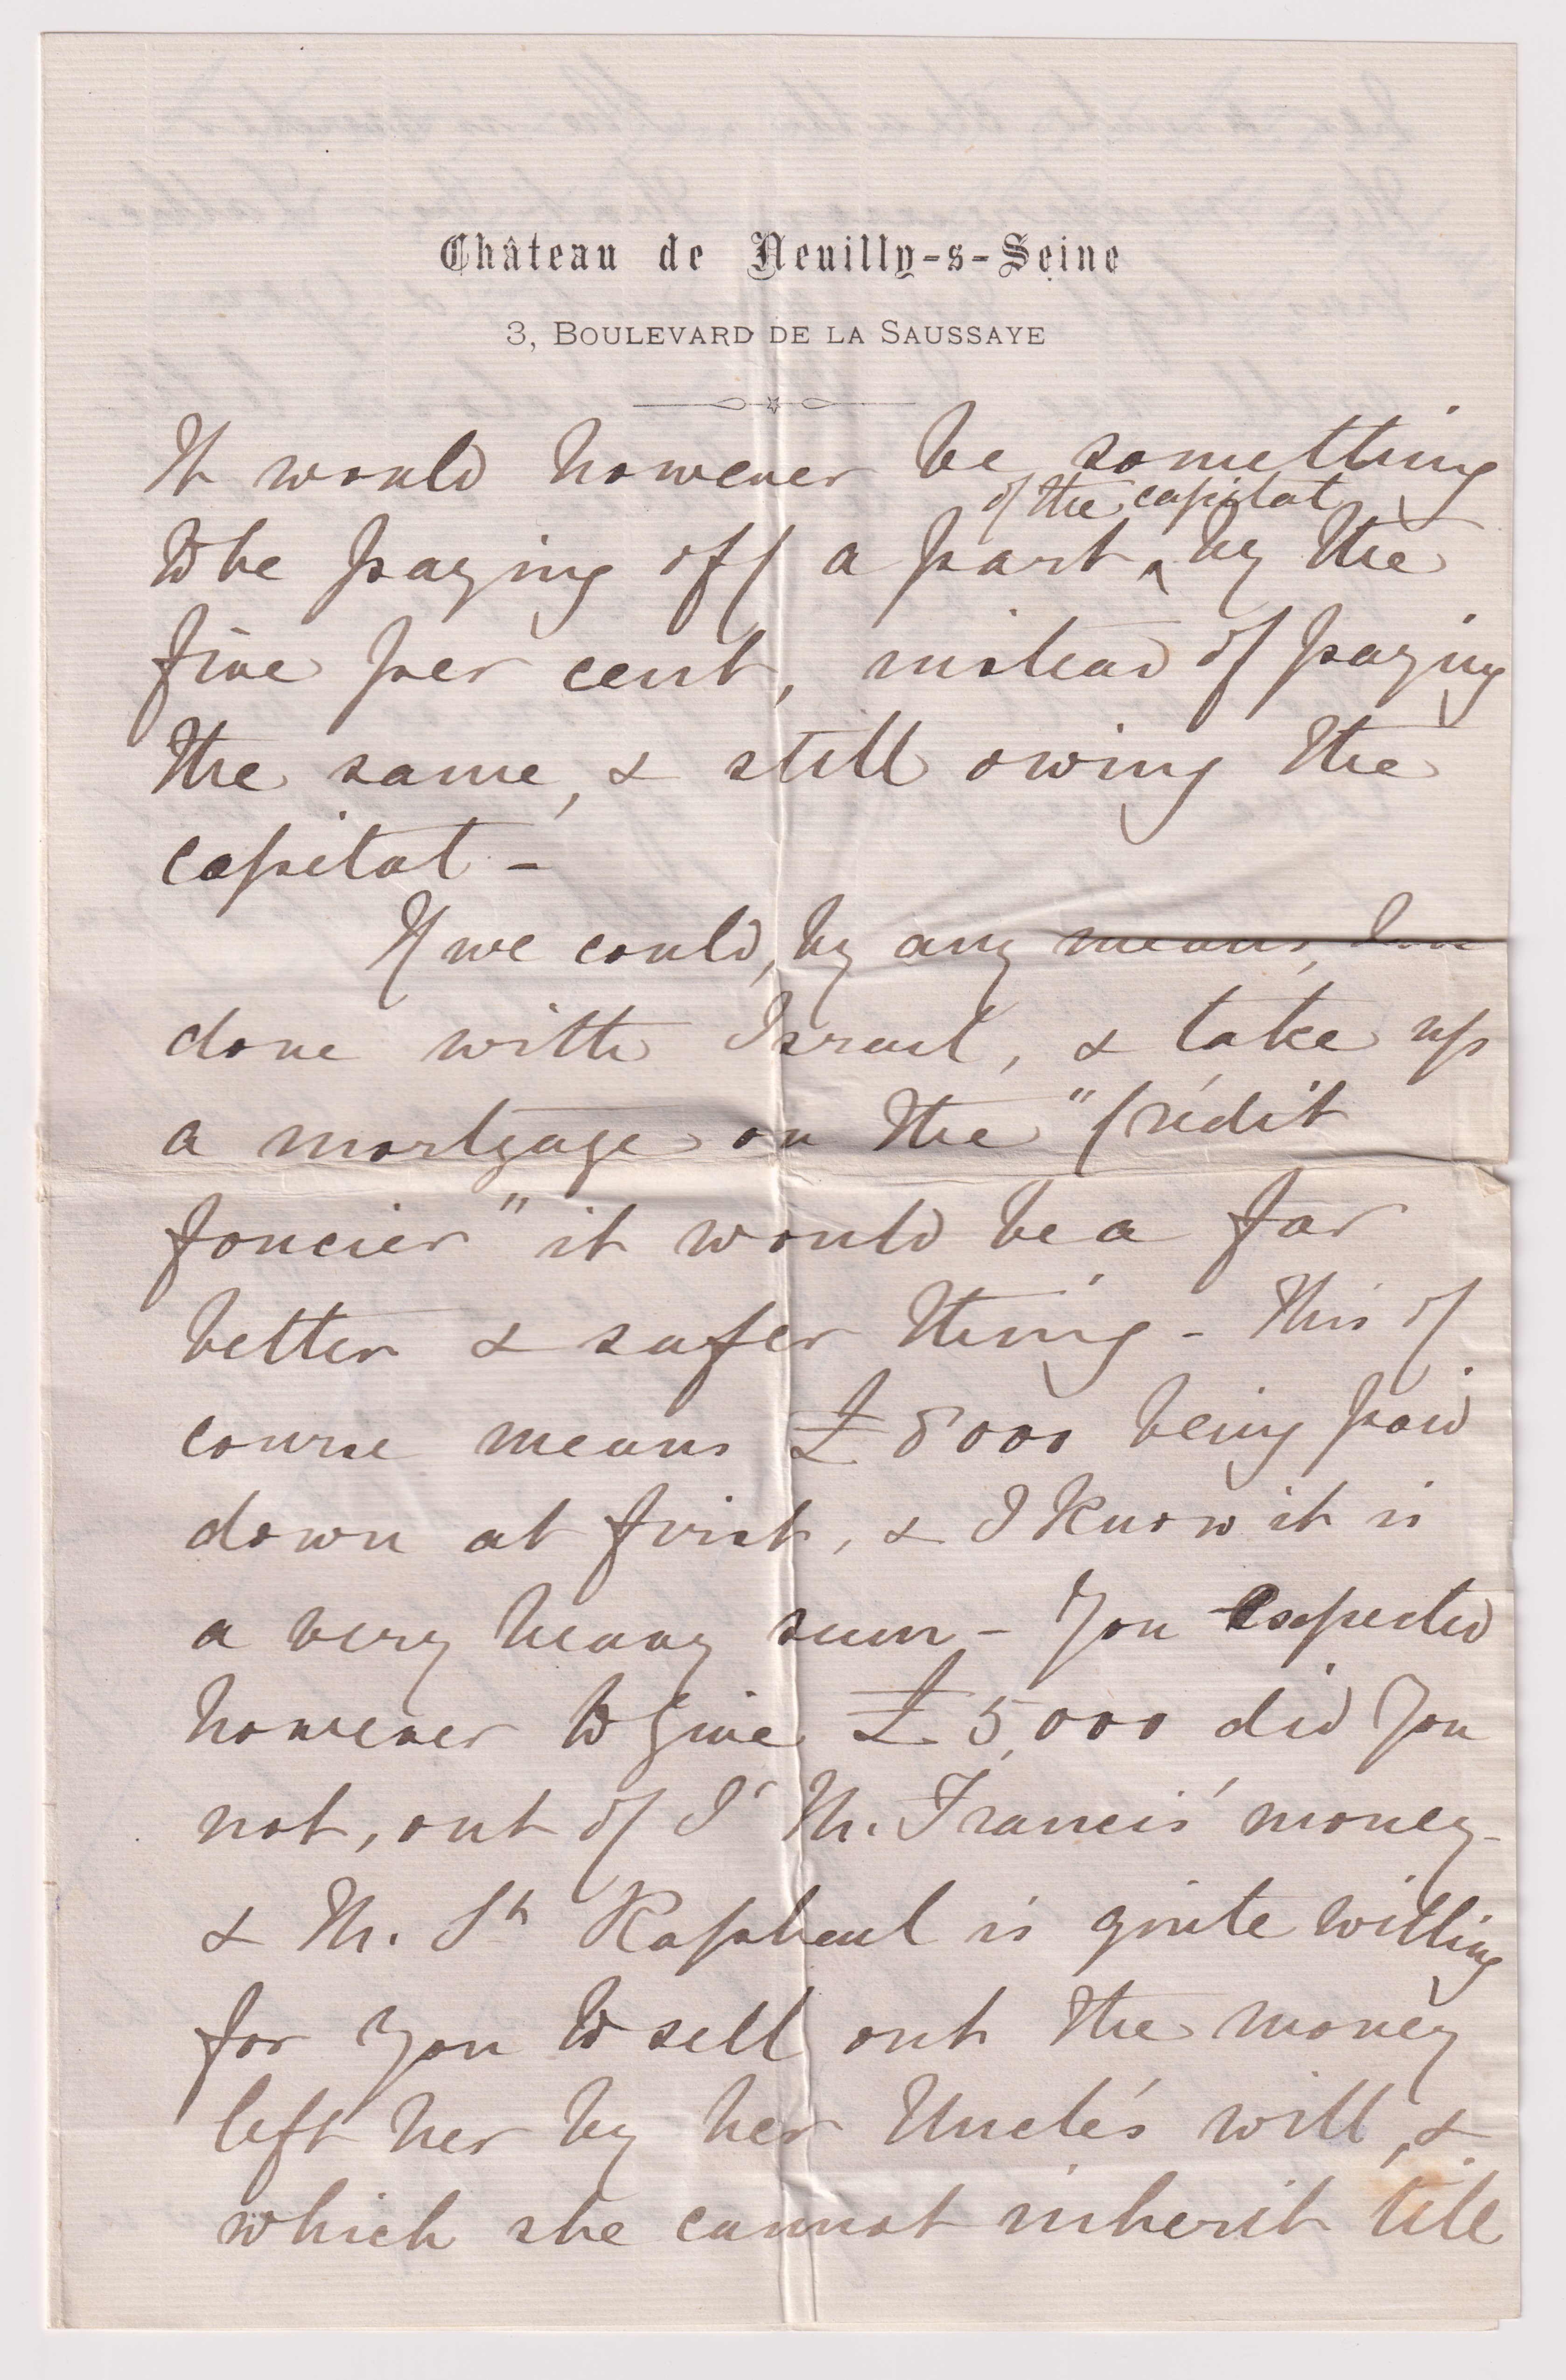 Château de Neuilly-s-Seine
3, BOULEVARD DE LA SAUSSAYE
It would however be something
of the capital
to be paying off a part ^ by the
five per cent, instead of paying
the same, & still owing the
capital -
If we could, by any means,
done with Israel, & take up
a mortgage on the "Crédit
foncier" it would be a far
better & safer thing - This of
course means £ 8000 being paid
down at first, & I know it is
a very heavy sum - You expected
however to give £ 5,000 did you
not, out of Sr M. Francis' money -
& M. St Raphael is quite willing
for you to sell out the money
left her by her Uncle's will, &
which she cannot inherit till